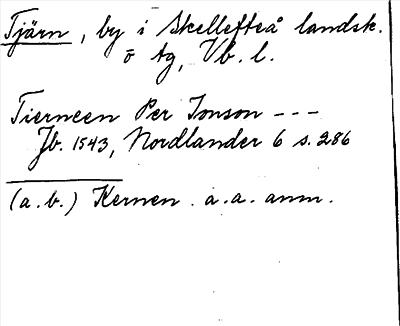 Tjärn, by i Skellefteå landsk.
o tg, Vb. l.
Tierneen Per Jonson ---
Jb. 1543, Nordlander 6 s. 286
(a.b.) Kernen. a.a. anm.